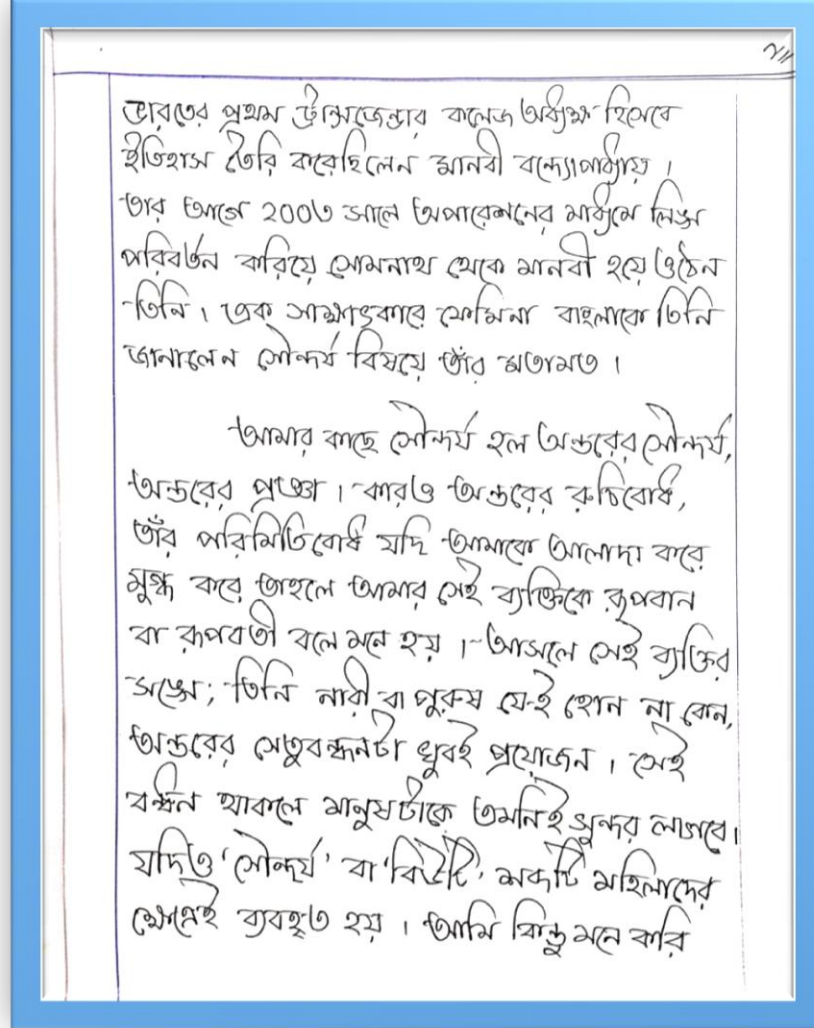 ২॥
ভারতের প্রথম ট্রান্সজেন্ডার কলেজ অধ্যক্ষ হিসেবে
ইতিহাস তৈরি করেছিলেন মানবী বন্দ্যোপাধ্যায়।
তার আগে ২০০৩ সালে অপারেশনের মাধ্যমে লিঙ্গ
পরিবর্তন করিয়ে সোমনাথ থেকে মানবী হয়ে ওঠেন
তিনি। এক সাক্ষাৎকারে ফেমিনা বাংলাকে তিনি
জানালেন সৌন্দর্য বিষয়ে তাঁর মতামত।
আমার কাছে সৌন্দর্য হল অন্তরের সৌন্দর্য,
অন্তরের প্রজ্ঞা। কারও অন্তরের রুচিবোধ,
তাঁর পরিমিতিবোধ যদি আমাকে আলাদা করে
মুগ্ধ করে তাহলে আমার সেই ব্যক্তিকে রূপবান
বা রূপবতী বলে মনে হয়। আসলে সেই ব্যক্তির
সঙ্গে; তিনি নারী বা পুরুষ যে-ই হোন না কেন,
অন্তরের সেতুবন্ধনটা খুবই প্রয়োজন। সেই
বন্ধন থাকলে মানুষটাকে এমনিই সুন্দর লাগবে।
যদিও 'সৌন্দর্য' বা 'বিউটি' শব্দটি মহিলাদের
ক্ষেত্রেই ব্যবহৃত হয়। আমি কিন্তু মনে করি